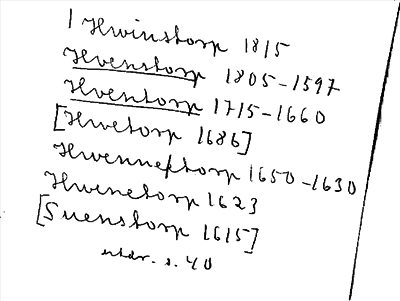 | Hwinstorp 1815
Hvenstorp 1805-1597
Hventorp 1715-1660
[Hwetorp 1686]
Hwenneftorp 1650-1630
Hwenetorp 1623
[Suenstorp 1615]
utdr. s. 40